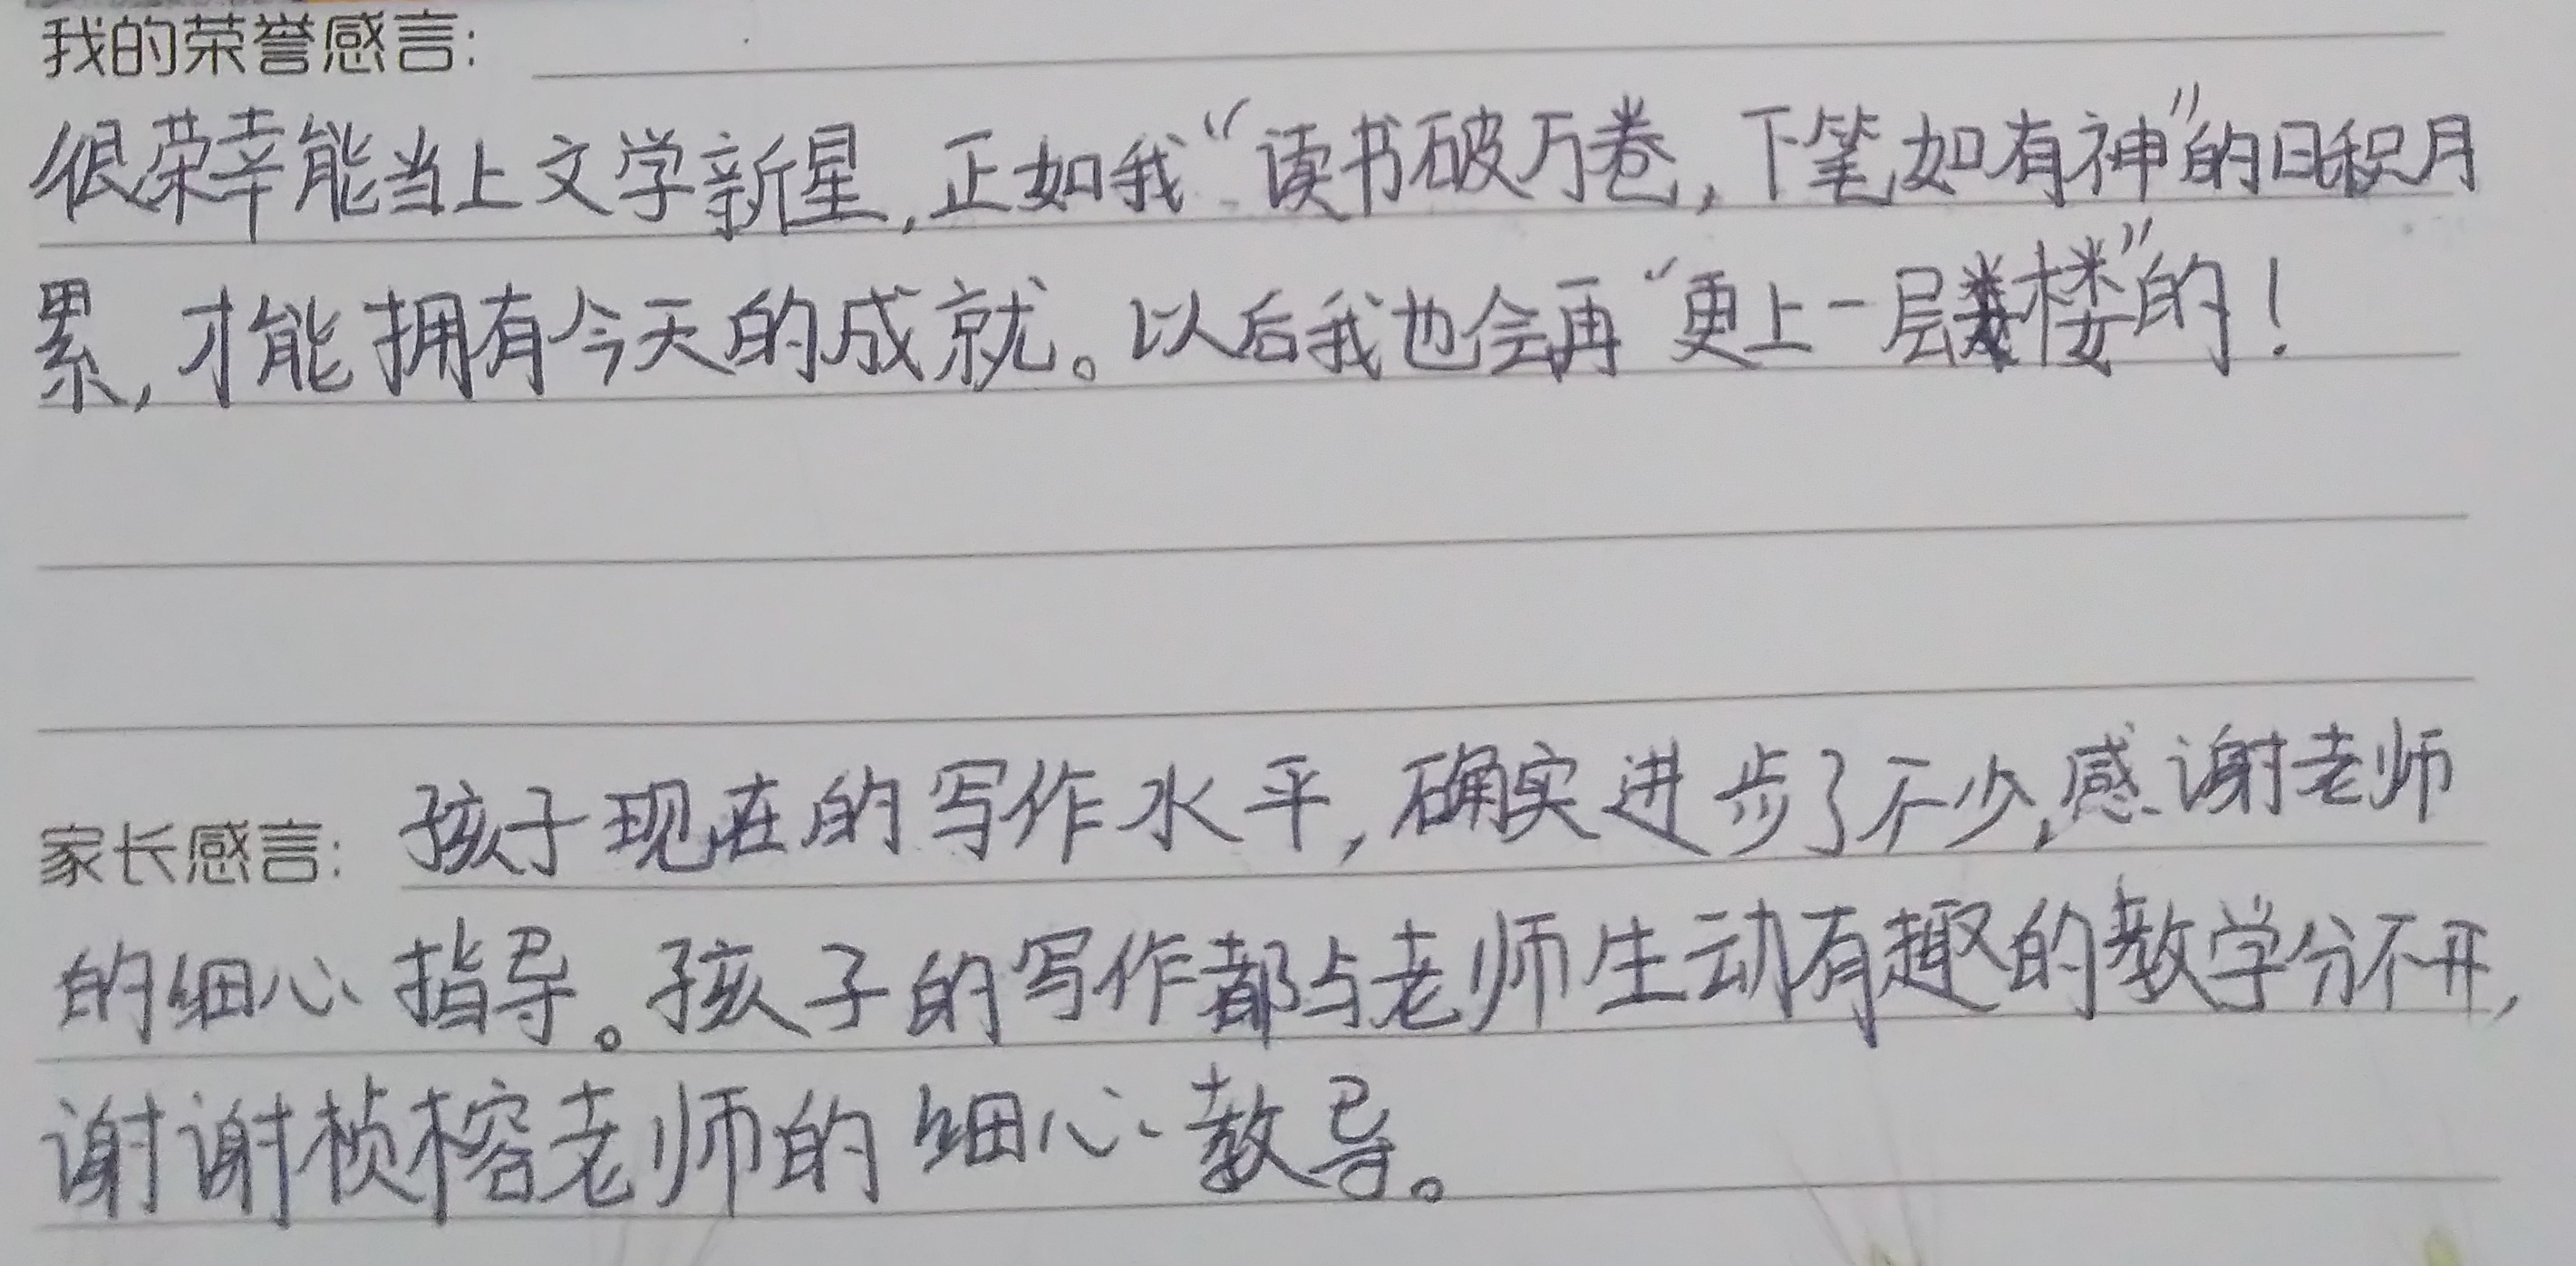 我的荣誉感言:
很荣幸能当上文学新星,正如我“读书破万卷,下笔如有神”的日积月
累,才能拥有今天的成就。以后我也会再“更上一层楼”的!
家长感言: 孩子现在的写作水平,确实进步了不少,感谢老师
的细心指导。孩子的写作都与老师生动有趣的教学分不开,
谢谢桢榕老师的细心教导。